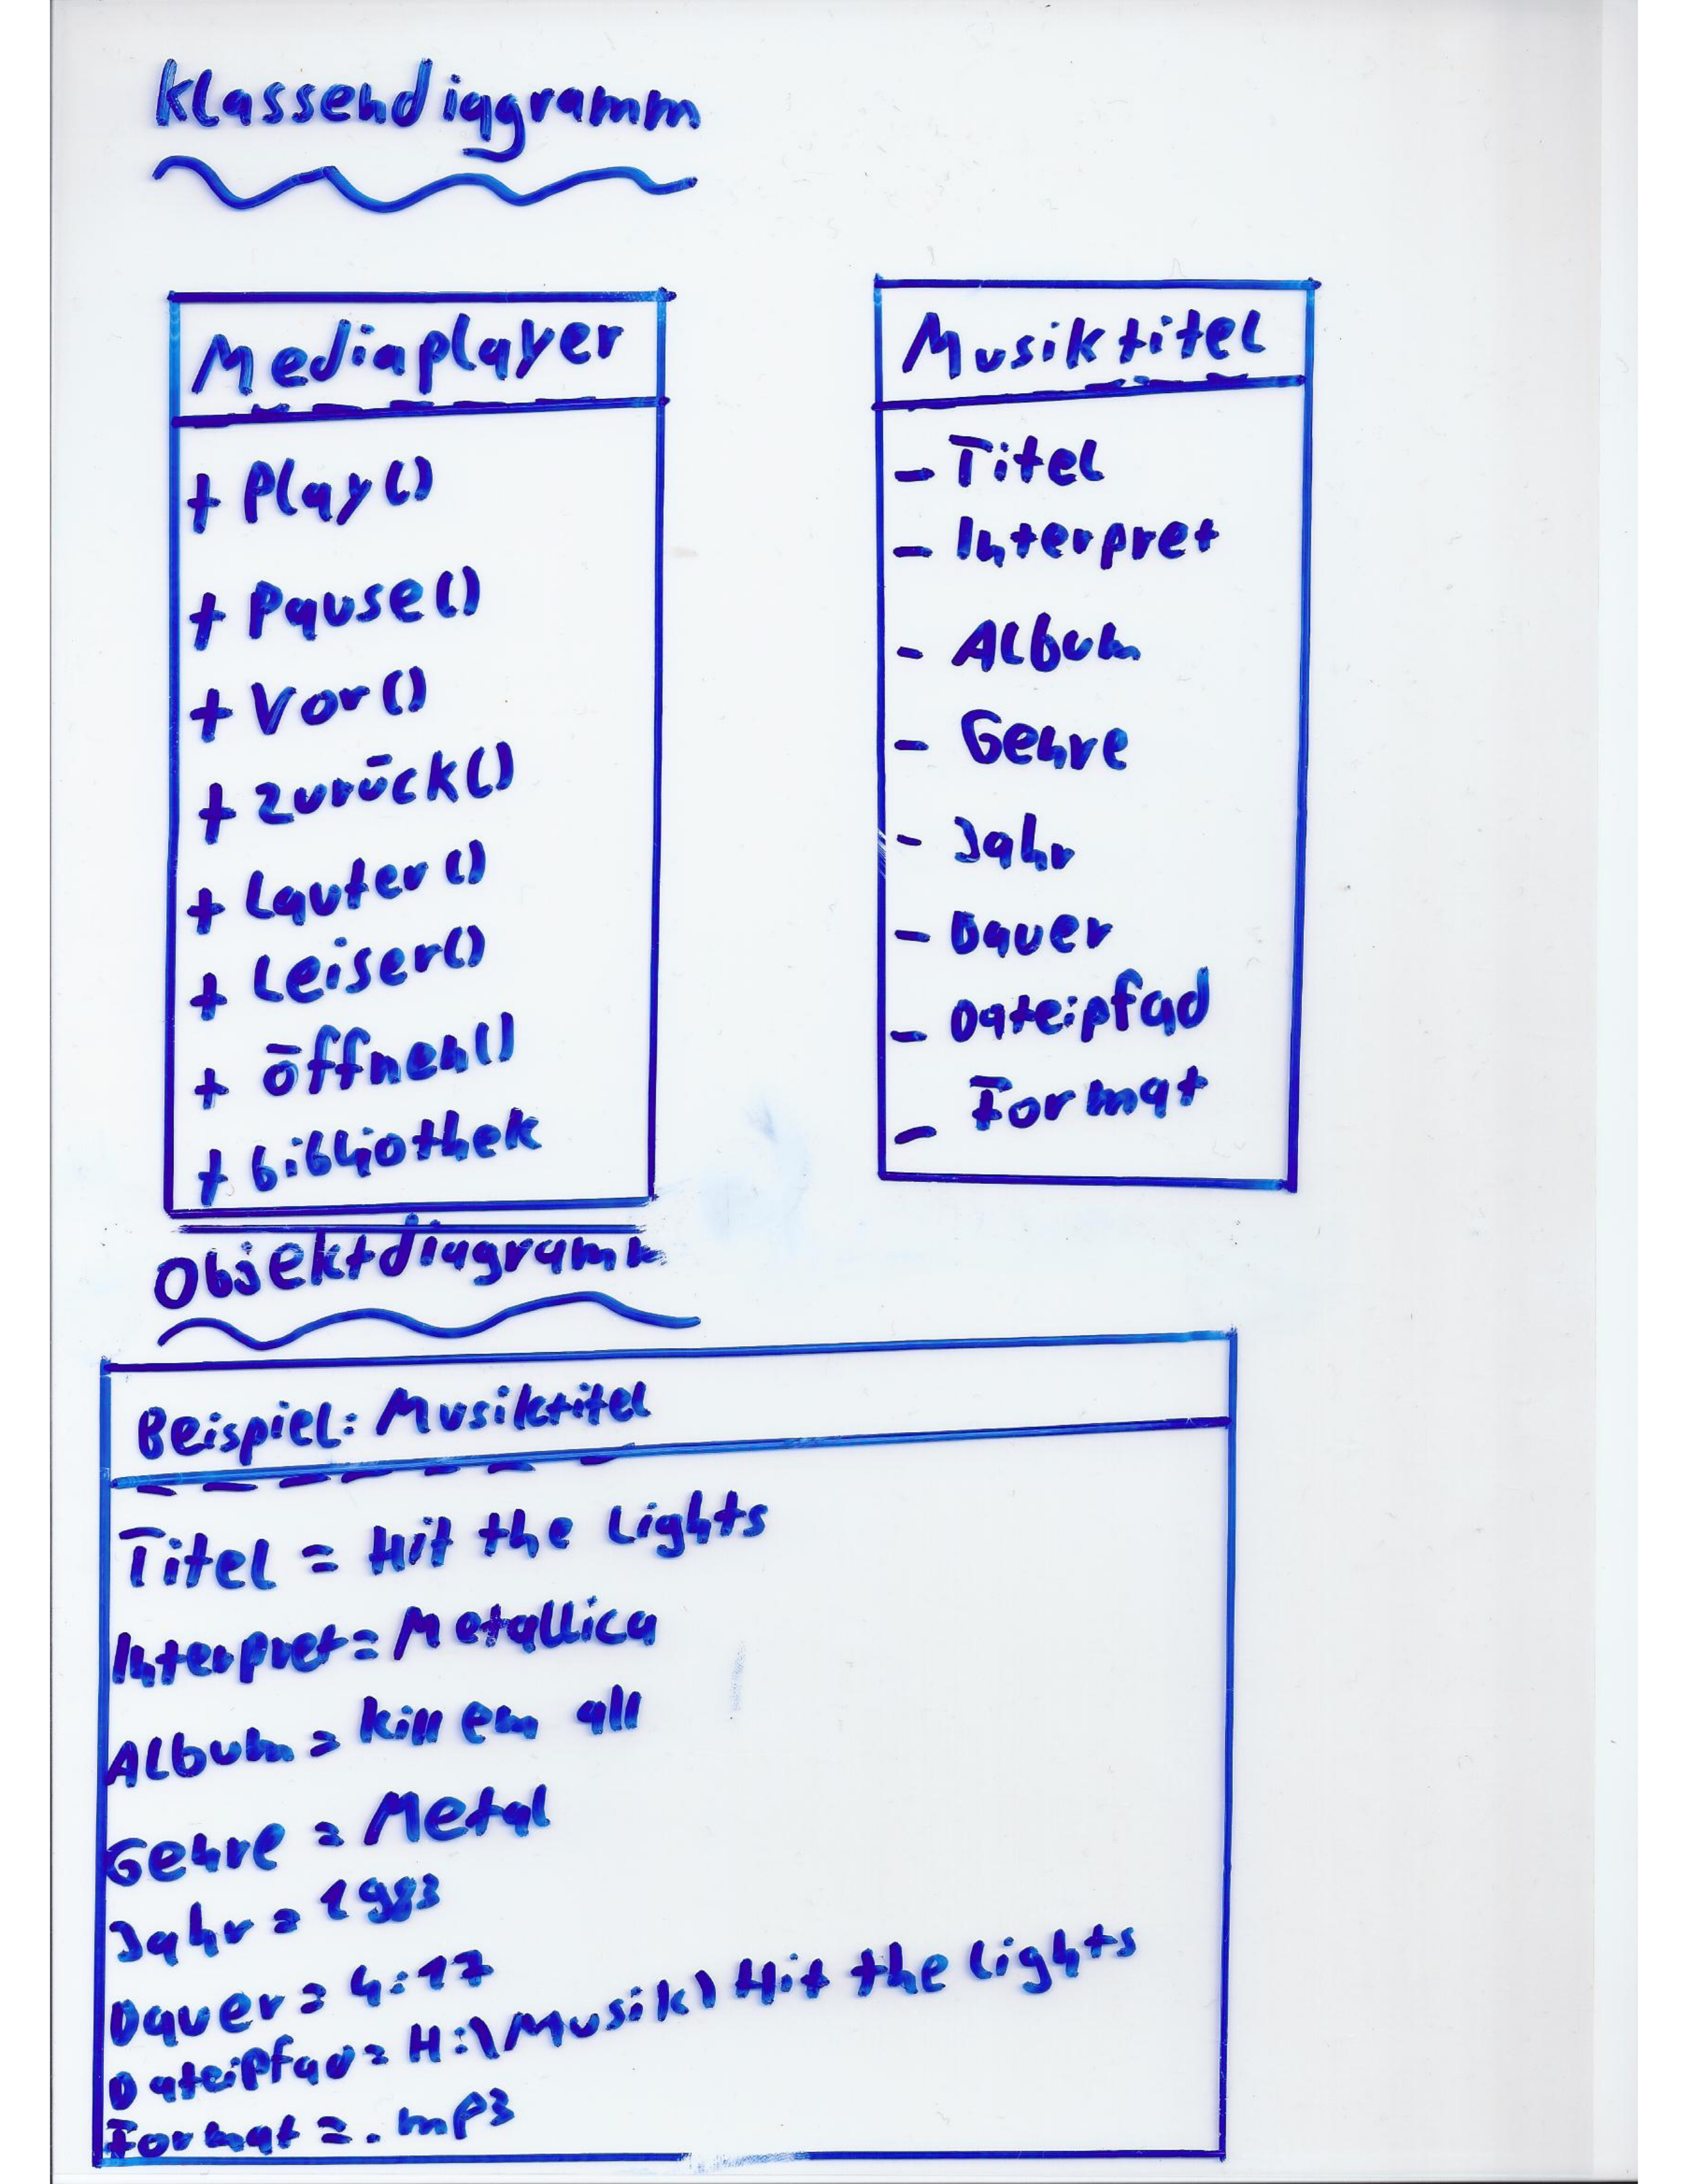 Klassendiagramm
Mediaplayer
+ Play()
+ Pause()
+ Vor()
+ zurück()
+ Lauter()
+ Leiser()
+ öffnen()
+ bibliothek
Musiktitel
- Titel
- Interpret
- Album
- Genre
- Jahr
- Dauer
- Dateipfad
- Format
Objektdiagramm
Beispiel: Musiktitel
Titel = Hit the Lights
Interpret = Metallica
Album = kill em all
Genre = Metal
Jahr = 1983
Dauer = 4:17
Dateipfad = H:\Musik\Hit the Lights
Format = .mp3